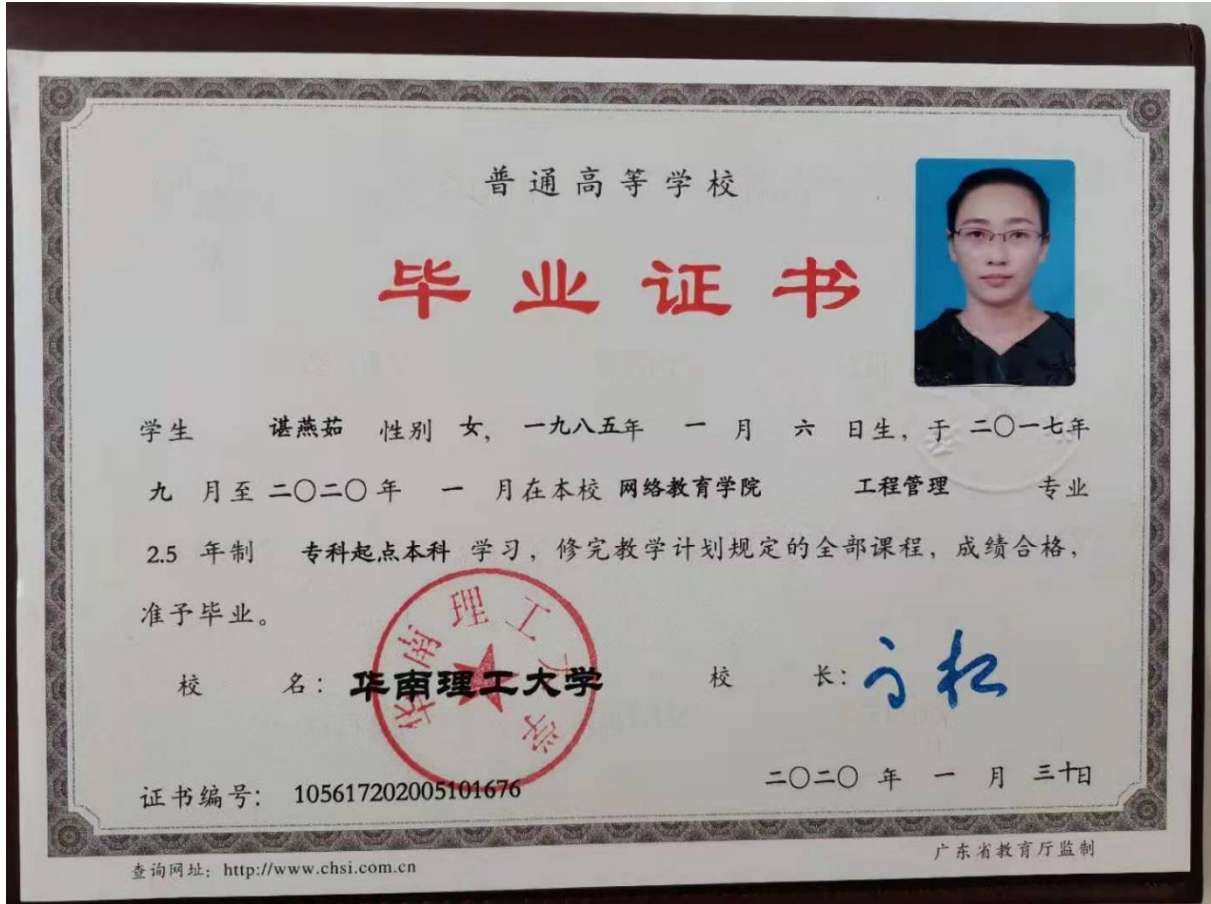 普通高等学校
毕业证书
学生 谌燕茹 性别 女, 一九八五年 一 月 六 日生, 于 二〇一七年
九 月至 二〇二〇 年 一 月在本校 网络教育学院 工程管理 专业
2.5 年制 专科起点本科 学习, 修完教学计划规定的全部课程, 成绩合格,
准予毕业。
华南理工大学
校 名: 华南理工大学 校 长:
证书编号: 105617202005101676 二〇二〇 年 一 月 三十日
查询网址: http://www.chsi.com.cn 广东省教育厅监制